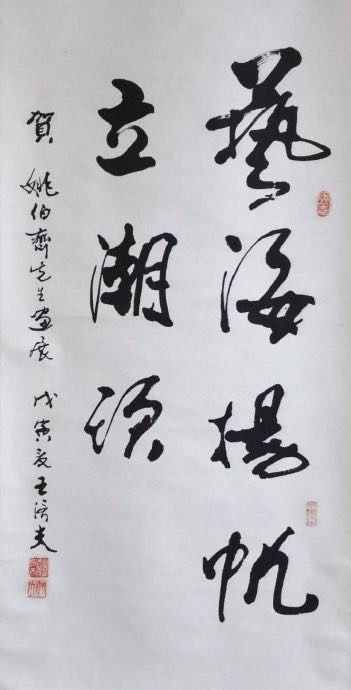 藝海揚帆
立潮頭
賀 姚伯齊先生畫展 戊寅夏王濟夫